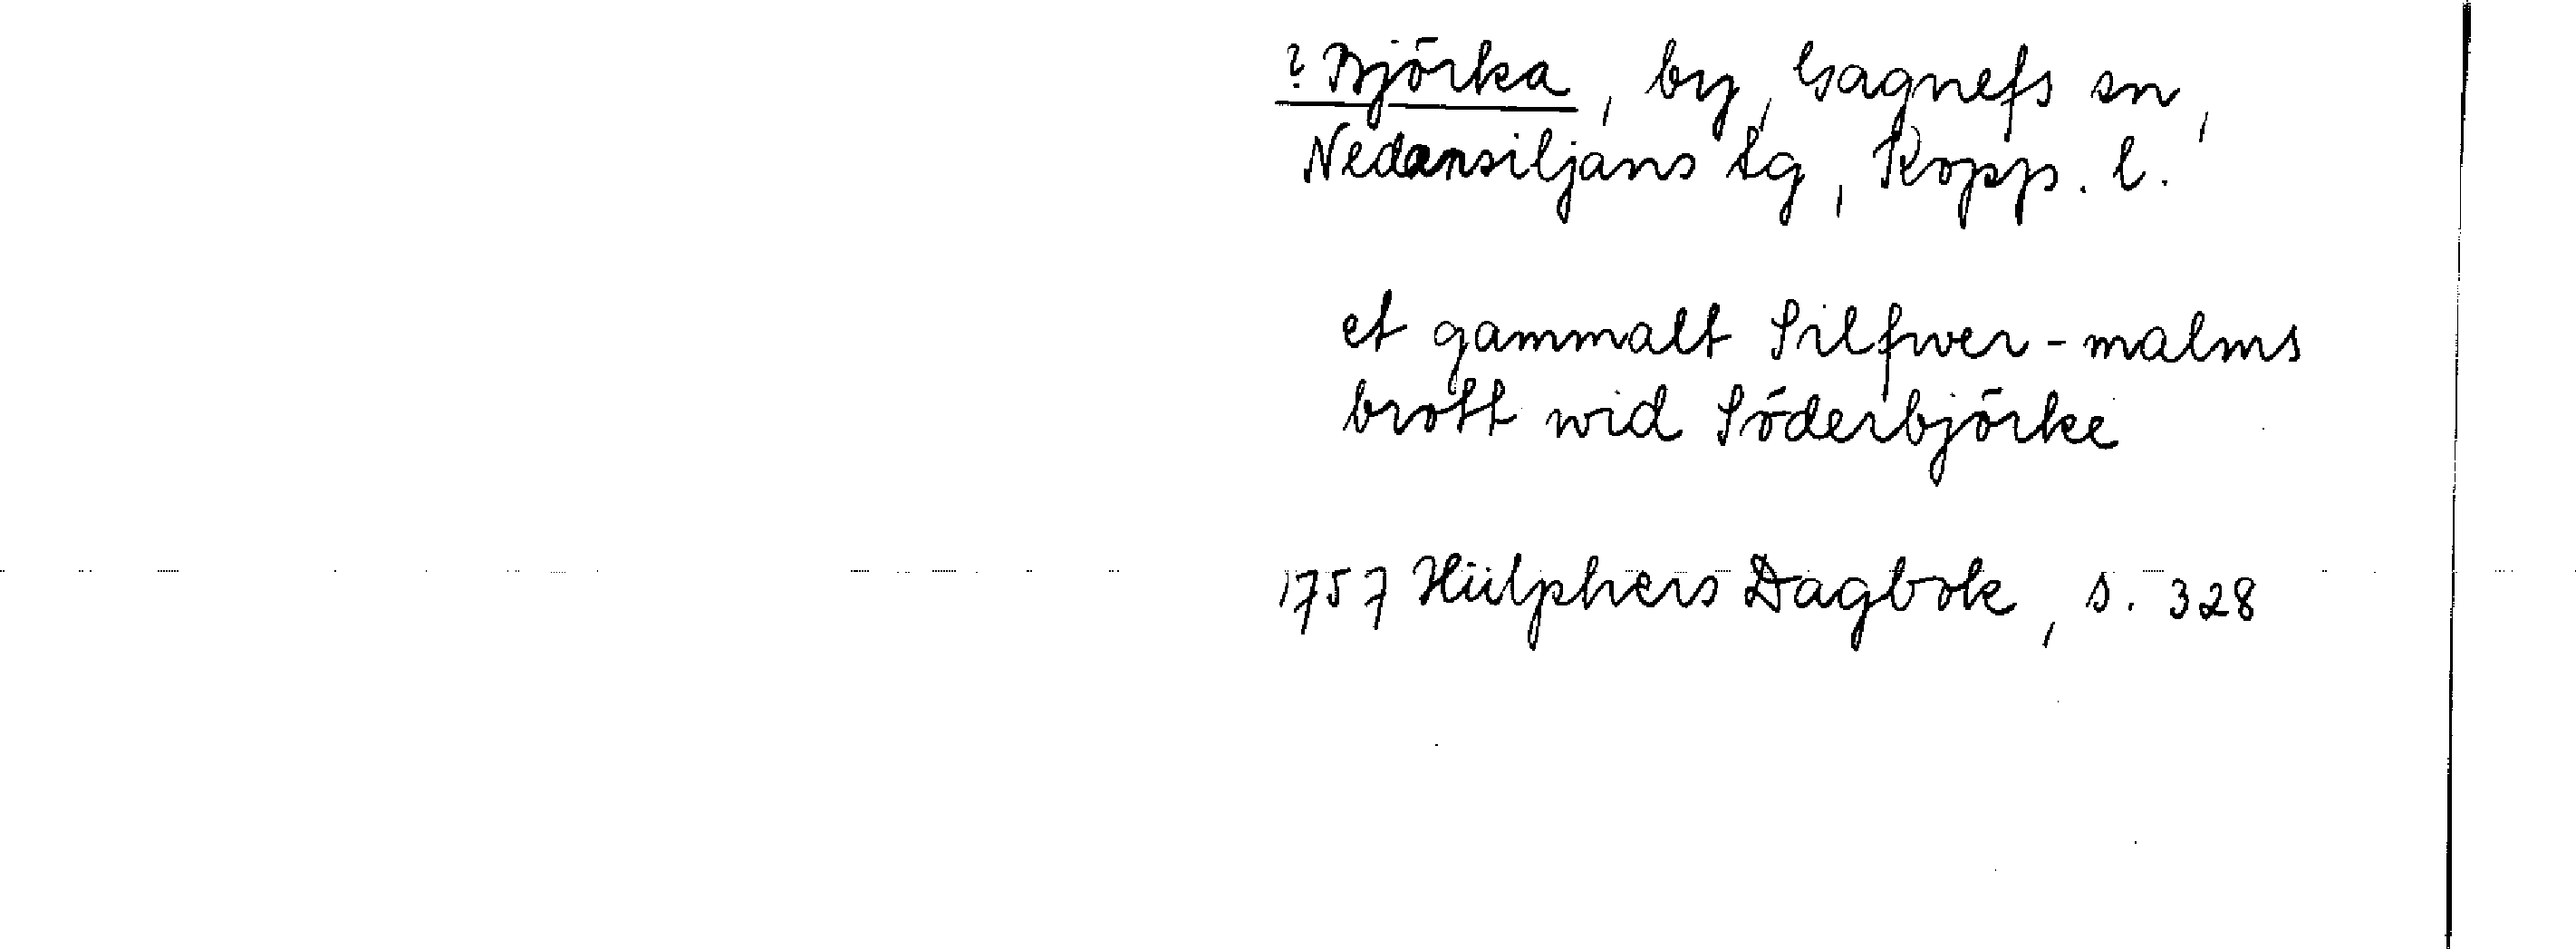 ? Björka, by, Gagnefs sn,
Nedansiljans tg, Kopp. l.
et gammalt Silfwer-malms
brott wid Söderbjörke
1757 Hülphers Dagbok, s. 328